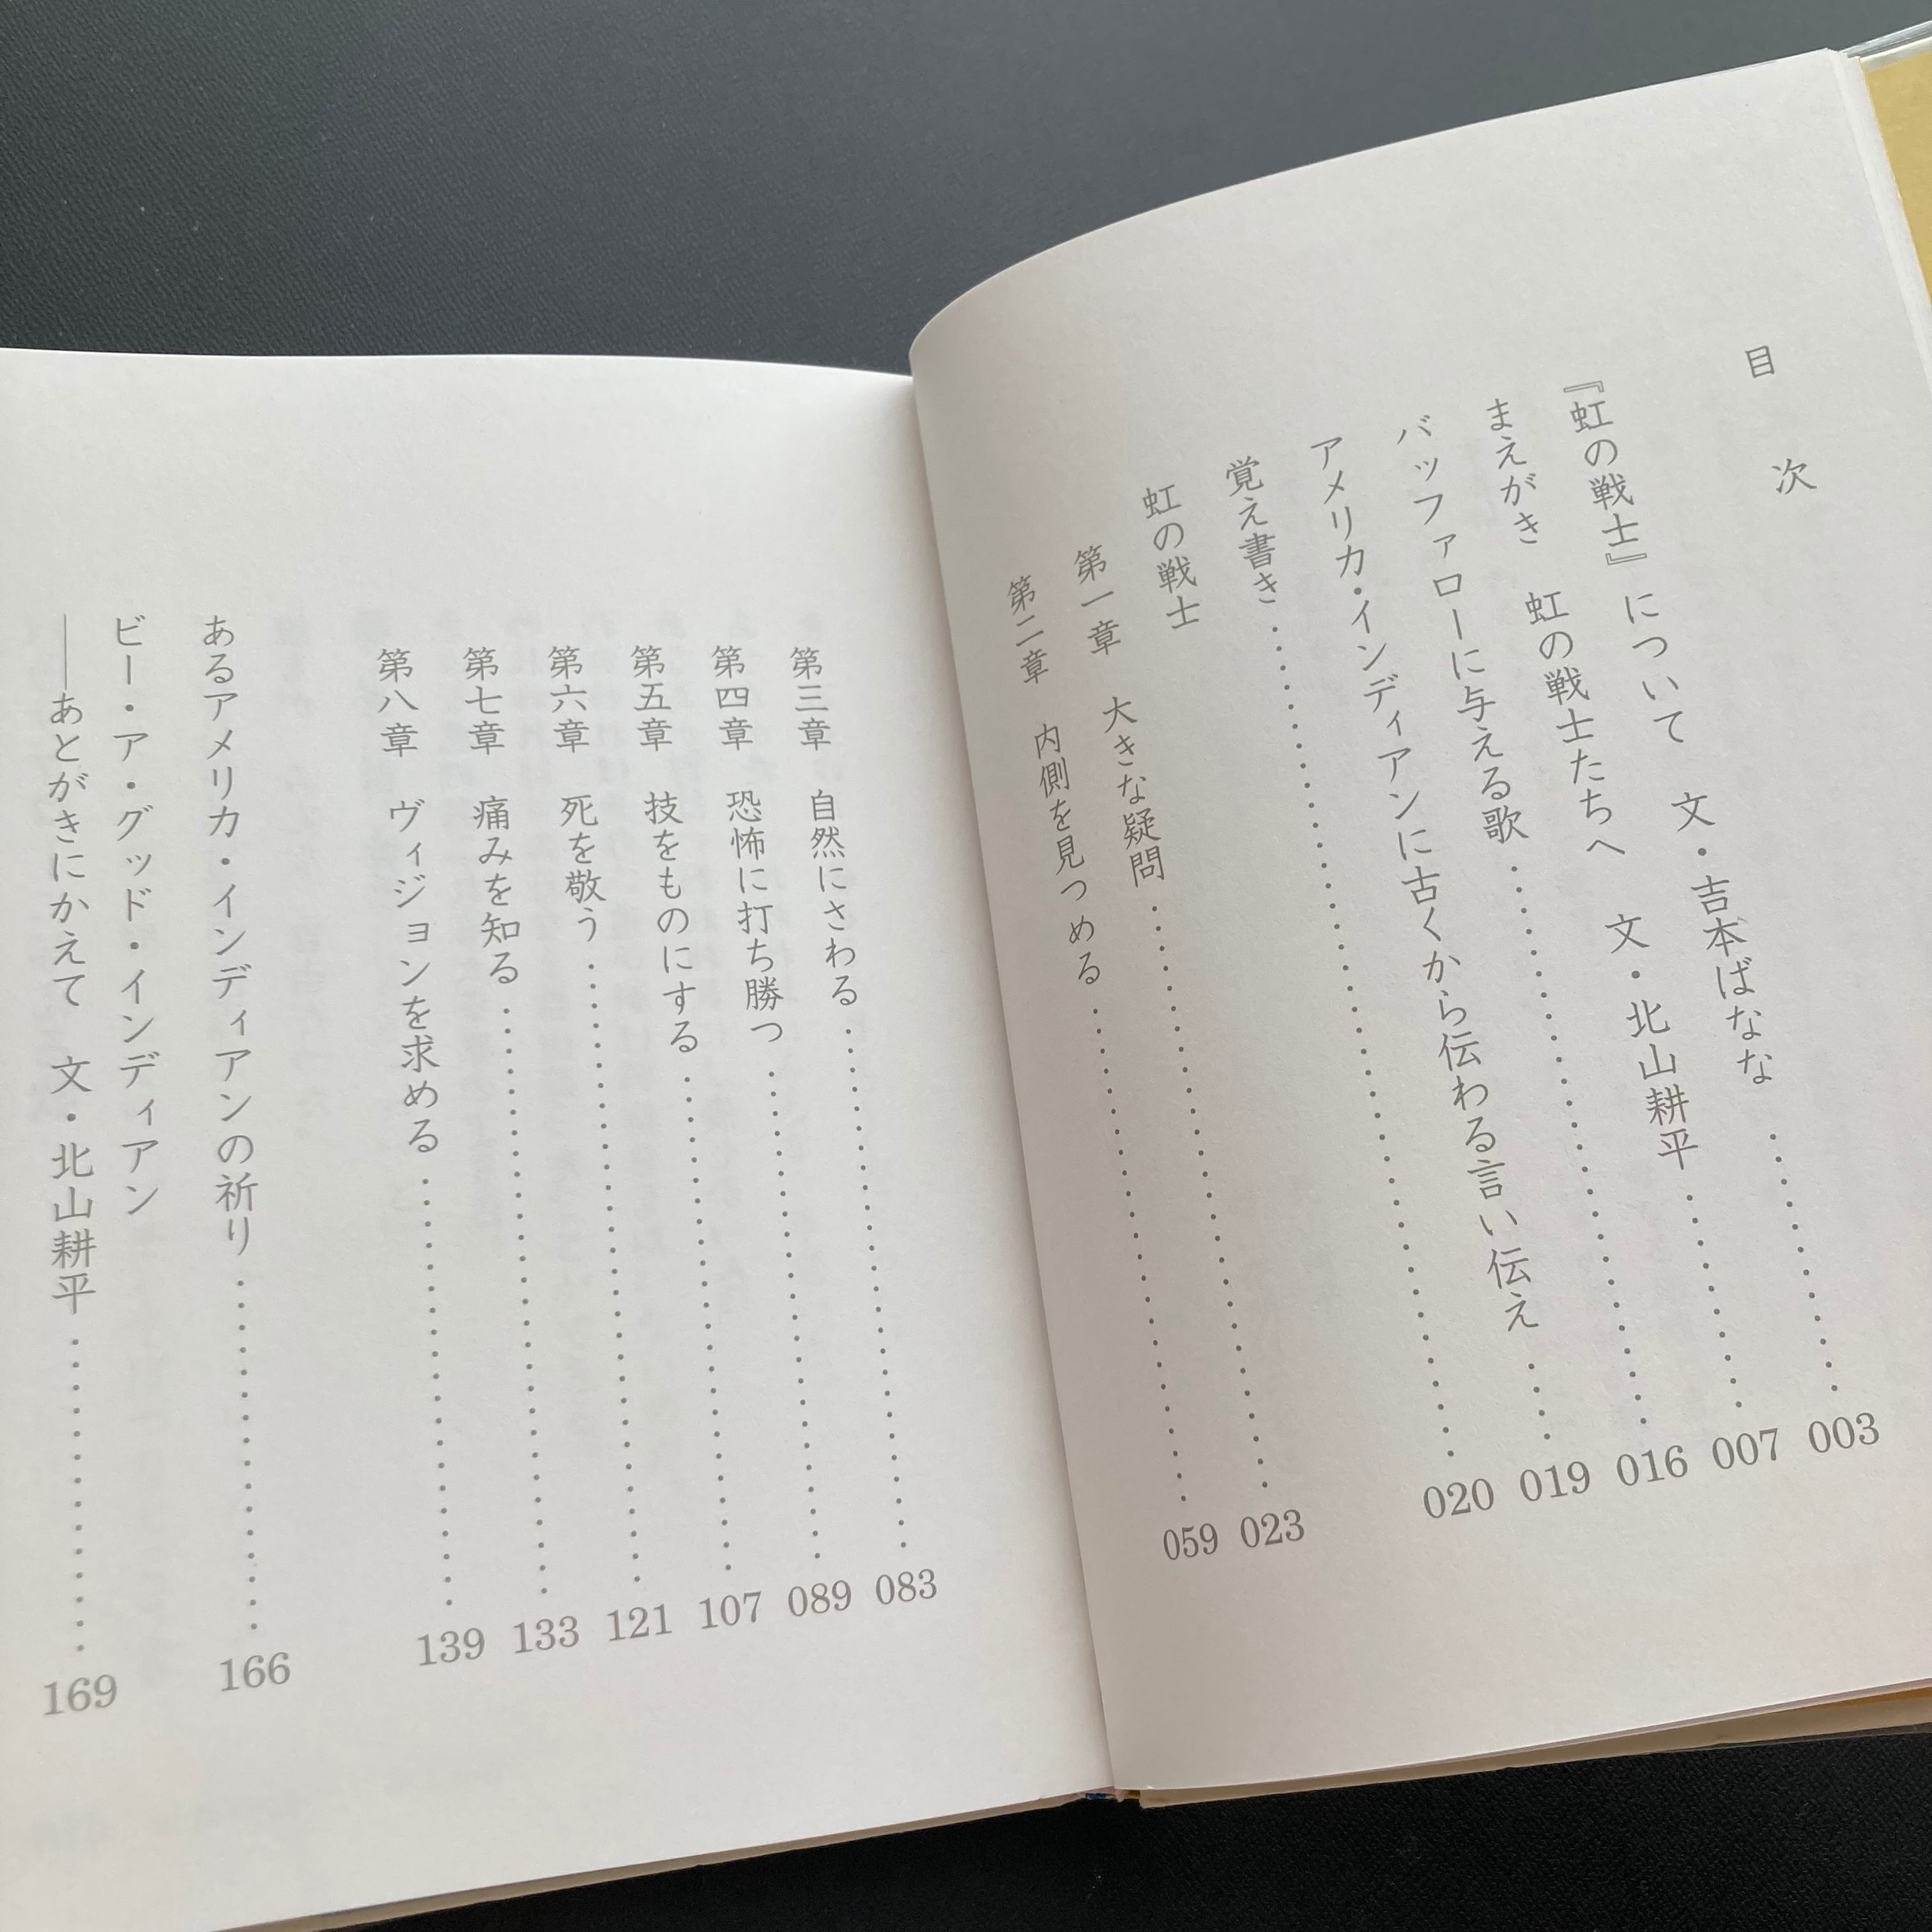 目 次
『虹の戦士』について 文・吉本ばなな ………… 003
まえがき 虹の戦士たちへ 文・北山耕平 ………… 007
バッファローに与える歌 ………… 016
アメリカ・インディアンに古くから伝わる言い伝え ………… 019
覚え書き ………… 020
虹の戦士
第一章 大きな疑問 ………… 023
第二章 内側を見つめる ………… 059
第三章 自然にさわる ………… 083
第四章 恐怖に打ち勝つ ………… 089
第五章 技をものにする ………… 107
第六章 死を敬う ………… 121
第七章 痛みを知る ………… 133
第八章 ヴィジョンを求める ………… 139
あるアメリカ・インディアンの祈り ………… 166
ビー・ア・グッド・インディアン
――あとがきにかえて 文・北山耕平 ………… 169